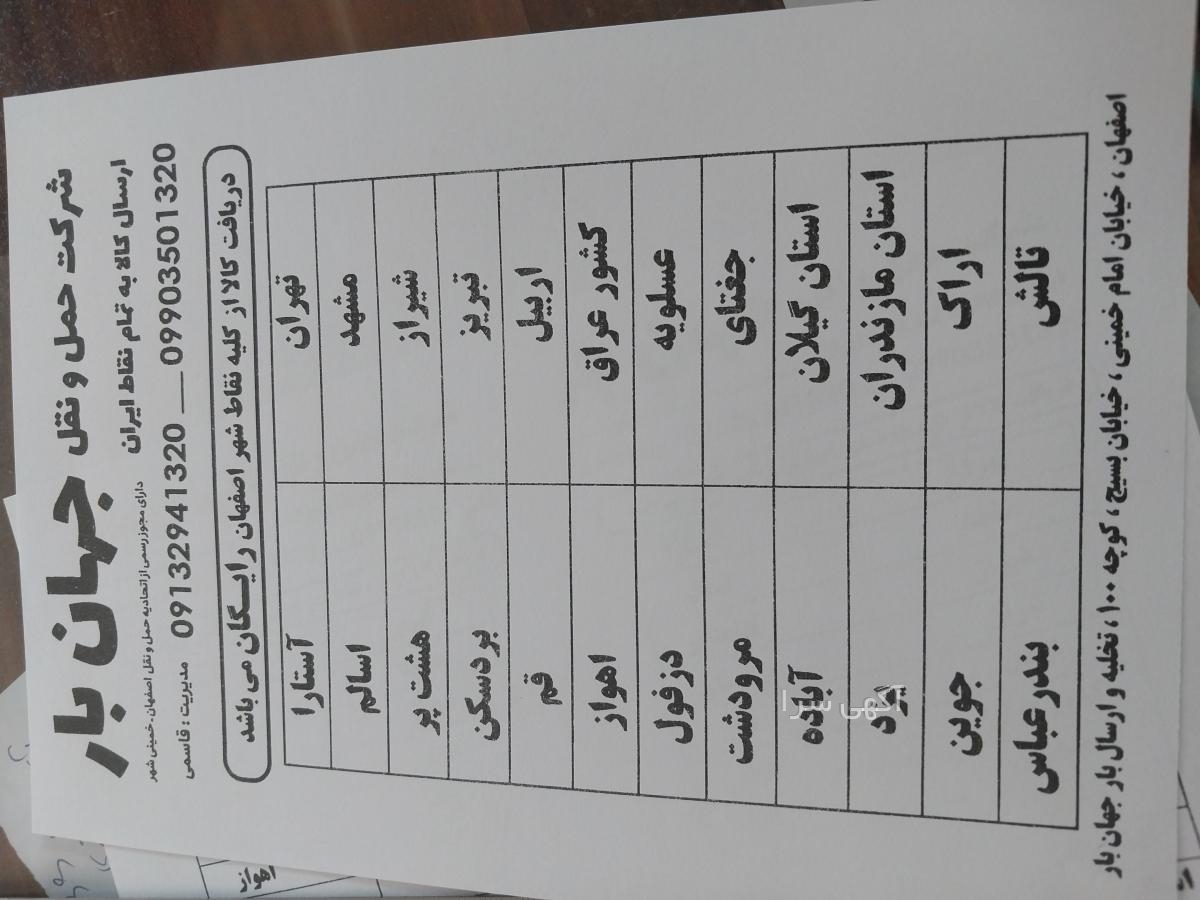 شرکت حمل و نقل جهان بار
ارسال کالا به تمام نقاط ایران
دارای مجوز رسمی از اتحادیه حمل و نقل اصفهان - خمینی شهر
مدیریت : قاسمی 09132941320 __ 09903501320
دریافت کالا از کلیه نقاط شهر اصفهان رایگان می باشد
تهران آستارا
مشهد اسالم
شیراز هشت پر
تبریز بردسکن
اربیل قم
کشور عراق اهواز
عسلویه دزفول
جغتای مرودشت
استان گیلان آباده
استان مازندران یزد
اراک جوین
تالش بندرعباس
اصفهان ، خیابان امام خمینی ، خیابان بسیج ، کوچه ۱۰۰ ، تخلیه و ارسال بار جهان بار
آگهی سرا
اهواز